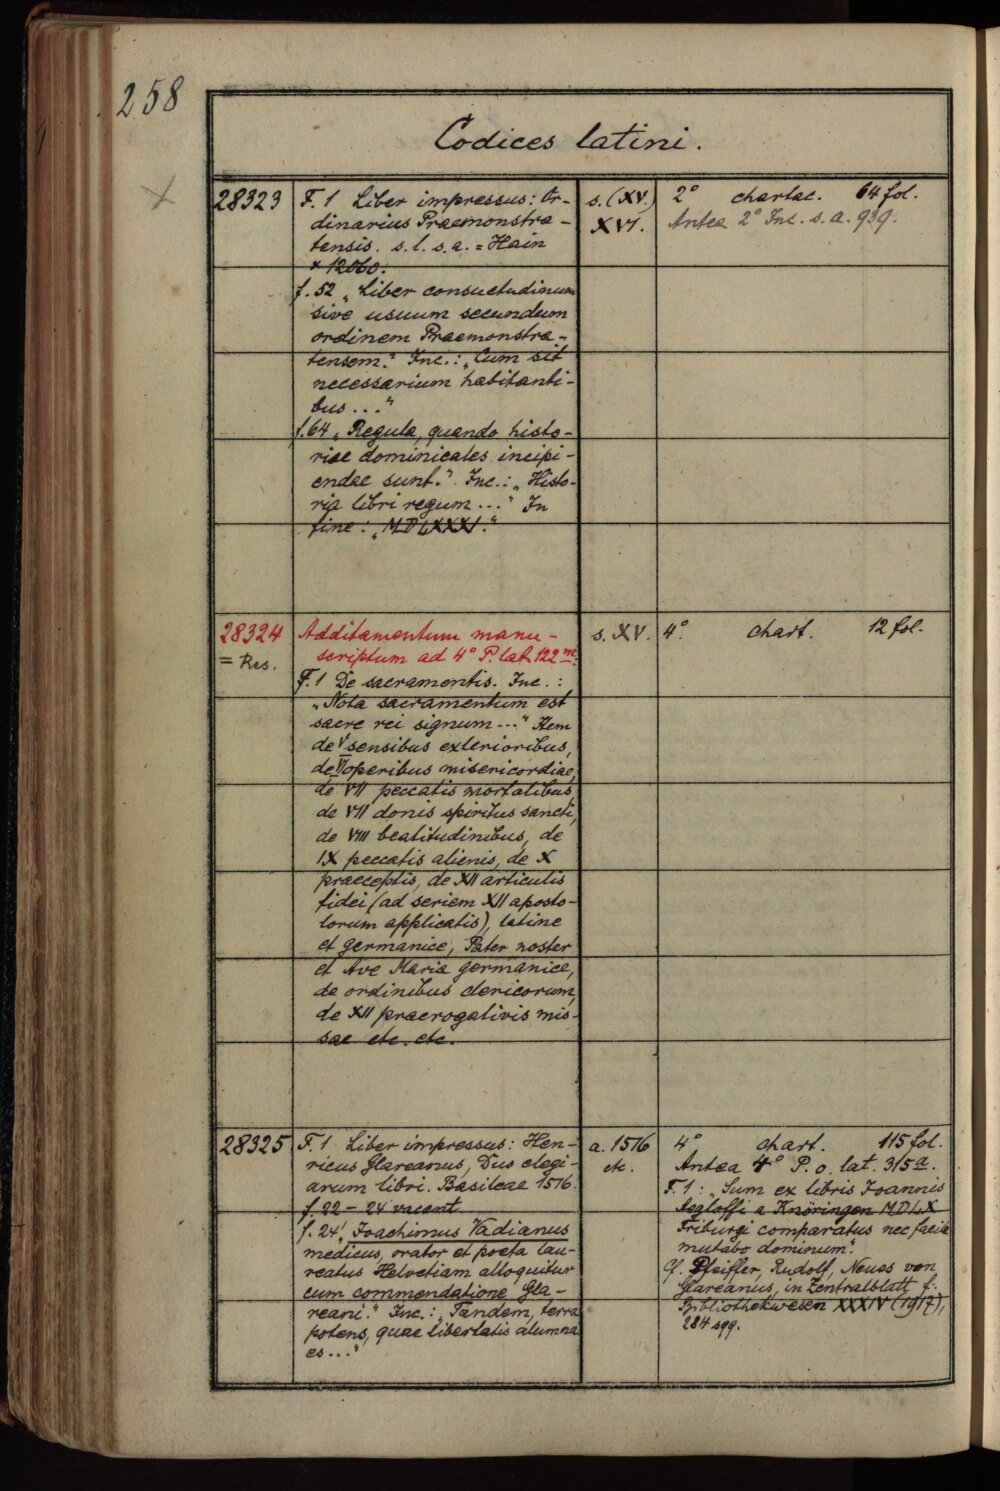 258
Codices latini.
28323
F. 1 Liber impressus: Or-
dinarius Praemonstra-
tensis. s. l. s. a. = Hain
* 12060.
f. 52 „Liber consuetudinum
sive usuum secundum
ordinem Praemonstra-
tensem." Inc.: „Cum sit
necessarium habitanti-
bus ..."
f. 64 „Regula, quando histo-
riae dominicales incipi-
endae sunt." Inc.: „Histo-
ria libri regum ..." In
fine: „MDLXXXI."
s. (XV.)
XVI.
2° chartac. 64 fol.
Antea 2° Inc. s. a. 939.
28324
= Res.
Additamentum manu-
scriptum ad 4° P. lat. 122 m.
F. 1 De sacramentis. Inc.:
„Nota sacramentum est
sacre rei signum ..." Item
de V sensibus exterioribus,
de VI operibus misericordiae,
de VII peccatis mortalibus,
de VII donis spiritus sancti,
de VIII beatitudinibus, de
IX peccatis alienis, de X
praeceptis, de XII articulis
fidei (ad seriem XII aposto-
lorum applicatis), latine
et germanice, Pater noster
et Ave Maria germanice,
de ordinibus clericorum,
de XII praerogativis mis-
sae etc. etc.
s. XV.
4°. chart. 12 fol.
28325
F. 1 Liber impressus: Hen-
ricus Glareanus, Duo elegi-
arum libri. Basileae 1516.
f. 22 – 24 vacant
f. 24' „Joachimus Vadianus
medicus, orator et poeta lau-
reatus Helvetiam alloquitur
cum commendatione Gla-
reani." Inc.: „Tandem, terra
potens, quae libertatis alumna
es ..."
a. 1516
etc.
4° chart. 115 fol.
Antea 4° P. o. lat. 315 a.
F. 1: „Sum ex libris Joannis
Aegloffi a Knöringen MDLX
Friburgi comparatus nec facile
mutabo dominum".
Cf. Pfeiffer, Rudolf, Neues von
Glareanus, in Zentralblatt f.
Bibliothekwesen XXXIV (1917),
284 sqq.